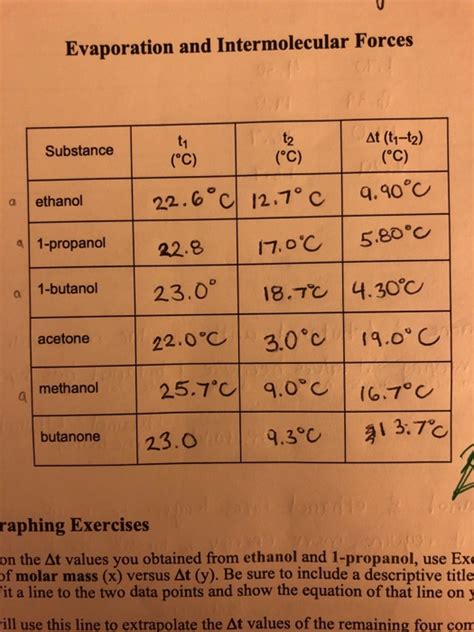 Evaporation and Intermolecular Forces
Substance t₁ (°C) t₂ (°C) Δt (t₁–t₂) (°C)
a ethanol 22.6°C 12.7°C 9.90°C
a 1-propanol 22.8 17.0°C 5.80°C
a 1-butanol 23.0° 18.7°C 4.30°C
acetone 22.0°C 3.0°C 19.0°C
a methanol 25.7°C 9.0°C 16.7°C
butanone 23.0 9.3°C 13.7°C
raphing Exercises
on the Δt values you obtained from ethanol and 1-propanol, use Exc
of molar mass (x) versus Δt (y). Be sure to include a descriptive title
it a line to the two data points and show the equation of that line on y
ill use this line to extrapolate the Δt values of the remaining four com